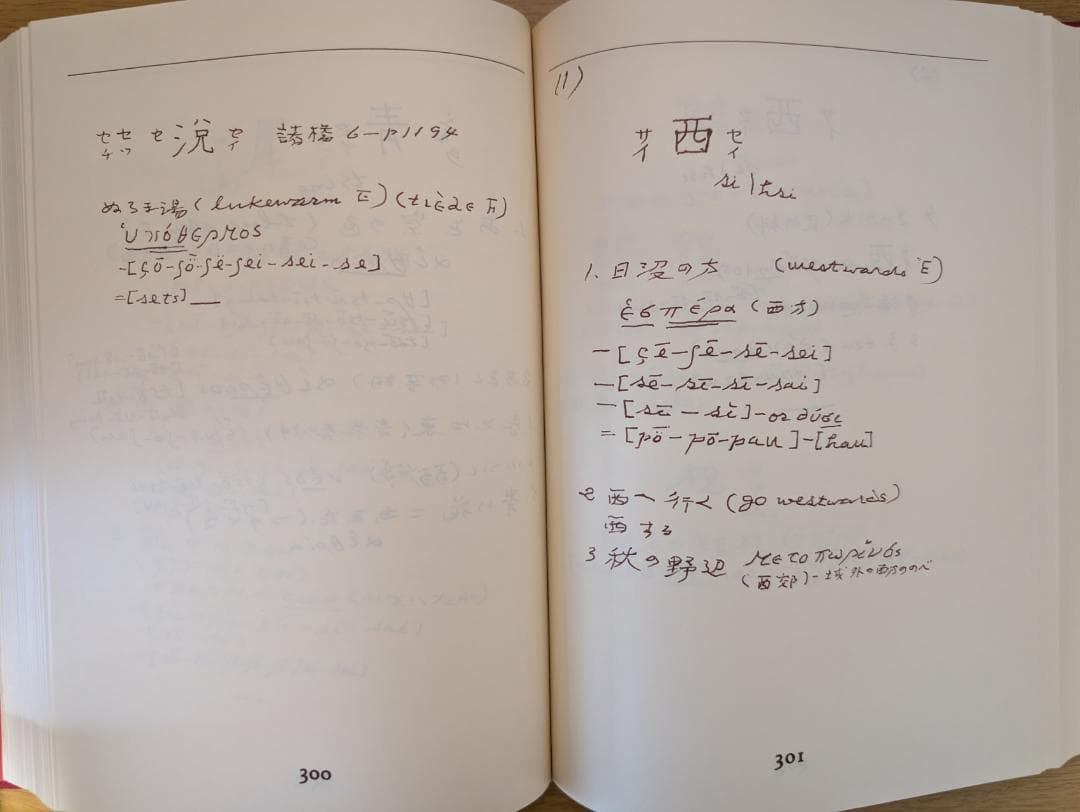 セチ セツ セ 涗 セイ 諸橋 6-p1194
ぬる主湯 (lukewarm E) (tiède F)
ὑπόθερμος
-[çō-ʃō-ʃë-ʃei-sei-se]
=[sets]
300
(1)
サイ 西 セイ
si | hsi
1. 日没の方 (westwards E)
ἑσπέρα (西方)
-[çē-ʃē-sē-sei]
-[sē-sī-sī-sai]
-[sī-sì]-or δύσι
=[pö-pō-pau]-[hau]
2 西へ行く (go westwards)
西する
3 秋の野辺 μετοπωρινός
(西郊)-域外の西方ののべ
301